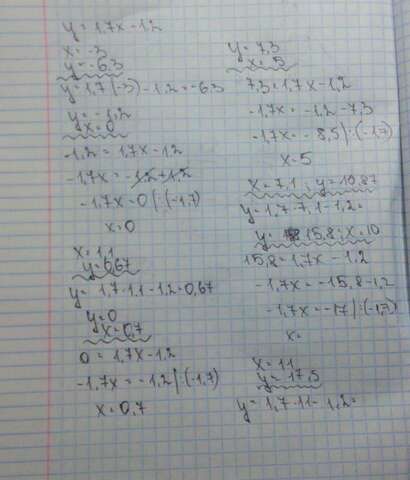 y = 1,7x - 1,2
x = -3
y = -6,3
y = 1,7 (-3) - 1,2 = -6,3
y = -1,2
x = 0
-1,2 = 1,7x - 1,2
-1,7x = -1,2 + 1,2
-1,7x = 0 | :(-1,7)
x = 0
x = 1,1
y = 0,67
y = 1,7 · 1,1 - 1,2 = 0,67
y = 0
x = 0,7
0 = 1,7x - 1,2
-1,7x = -1,2 | :(-1,7)
x = 0,7
y = 7,3
x = 5
7,3 = 1,7x - 1,2
-1,7x = -1,2 - 7,3
-1,7x = -8,5 | :(-1,7)
x = 5
x = 7,1 ; y = 10,87
y = 1,7 · 7,1 - 1,2 =
y = 15,8; x = 10
15,8 = 1,7x - 1,2
-1,7x = -15,8 - 1,2
-1,7x = -17 | :(-1,7)
x =
x = 11
y = 17,5
y = 1,7 · 11 - 1,2 =